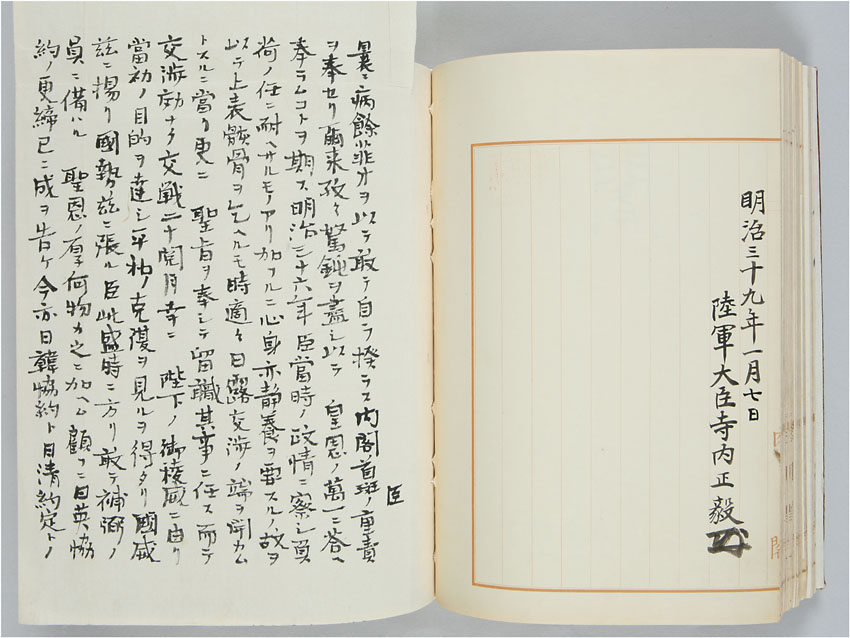 明治三十九年一月七日
陸軍大臣寺内正毅
臣
曩ニ病餘菲才ヲ以テ敢テ自ラ揆ラス内閣首班ノ重責
ヲ奉セリ爾来孜々駑鈍ヲ盡シ以テ 皇恩ノ萬一ニ答ヘ
奉ラムコトヲ期ス明治三十六年臣當時ノ政情ニ察シ負
荷ノ任ニ耐ヘサルモノアリ加フルニ心身亦静養ヲ要スルノ故ヲ
以テ上表骸骨ヲ乞ヘルモ時適々日露交渉ノ端ヲ開カム
トスルニ當リ更ニ 聖旨ヲ奉シテ留職其事ニ任ス而テ
交渉効ナク交戦二十閲月幸ニ 陛下ノ御稜威ニ由リ
當初ノ目的ヲ達シ平和ノ克復ヲ見ルヲ得タリ國威
茲ニ揚リ國勢茲ニ張ル臣此盛時ニ方リ敢テ補弼ノ
員ニ備ハル 聖恩ノ厚何物カ之ニ加ヘム顧フニ日英協
約ノ更締已ニ成ヲ告ケ今亦日韓協約ト日清約定トノ